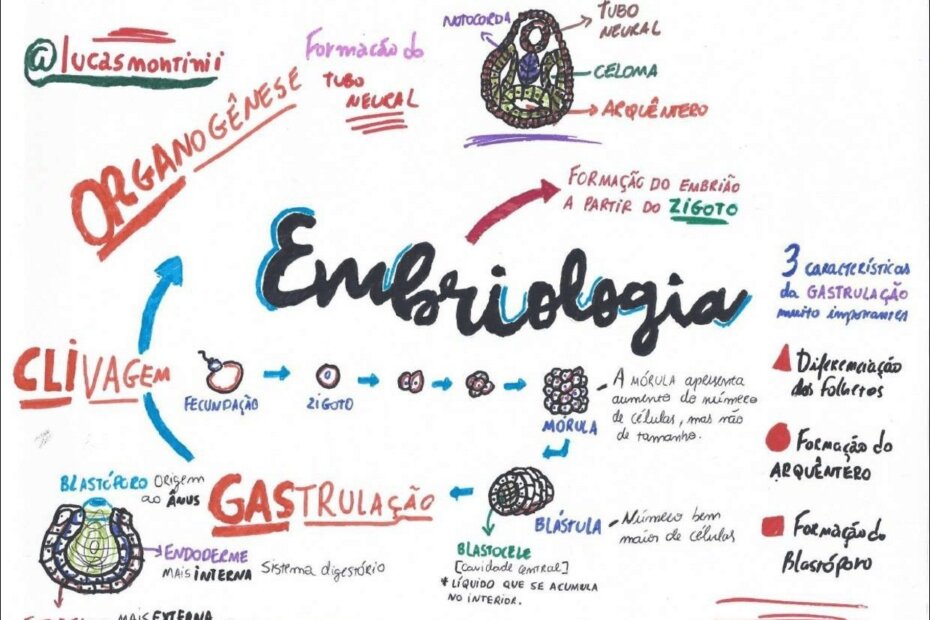 @lucasmontinii
ORGANOGÊNESE
Formação do
TUBO
NEURAL
NOTOCORDA
TUBO
NEURAL
CELOMA
ARQUÊNTERO
FORMAÇÃO DO EMBRIÃO
A PARTIR DO ZIGOTO
Embriologia
3 CARACTERÍSTICAS
da GASTRULAÇÃO
muito importantes
Diferenciação
dos folhetos
Formação do
ARQUÊNTERO
Formação do
Blastóporo
CLIVAGEM
FECUNDAÇÃO
ZIGOTO
MÓRULA
A MÓRULA apresenta
aumento do número
de células, mas não
de tamanho.
BLÁSTULA
Número bem
maior de células
BLASTOCELE
[cavidade central]
* LÍQUIDO QUE SE ACUMULA
NO INTERIOR.
GASTRULAÇÃO
BLASTÓPORO ORIGEM
ao ÂNUS
ENDODERME
MAIS INTERNA Sistema digestório
MAIS EXTERNA